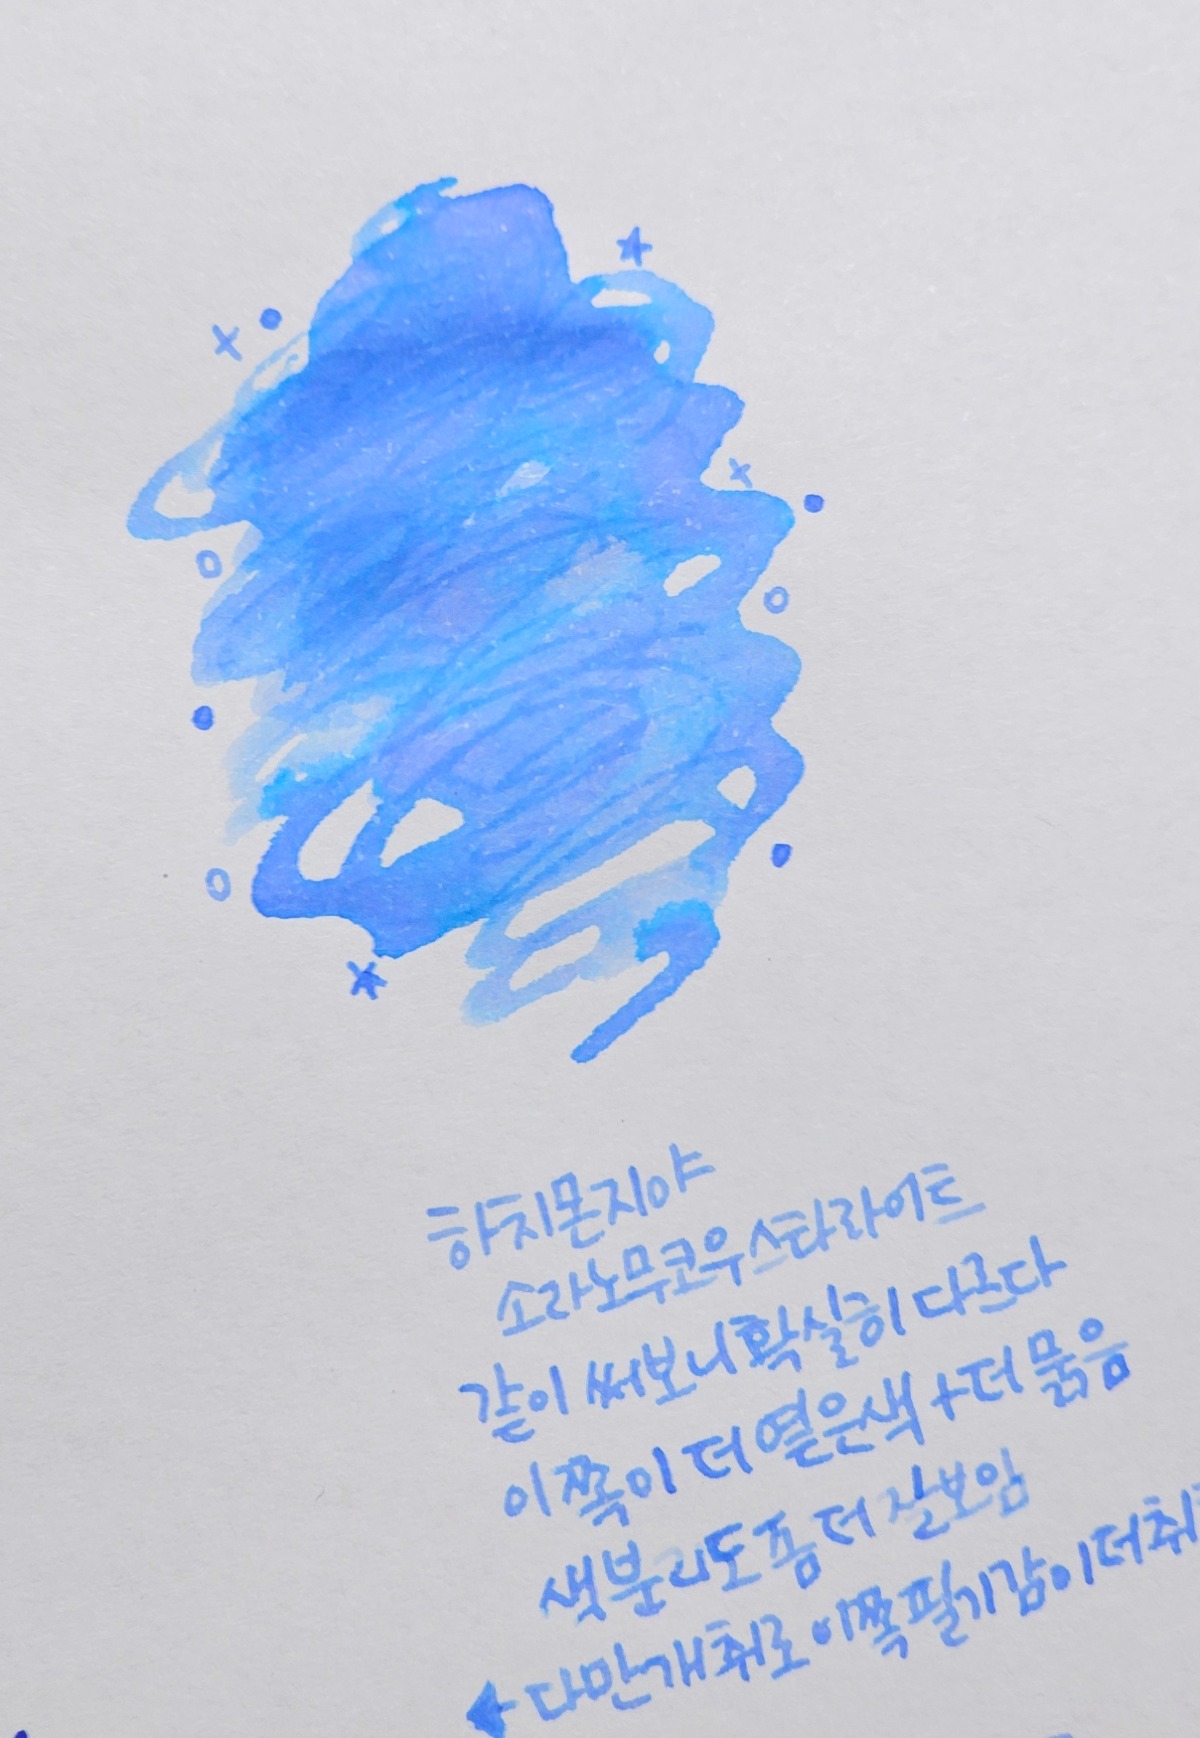 하치몬지야
소라노무코우스타라이트
같이 써보니 확실히 다르다
이 쪽이 더 옅은색 + 더 묽음
색분리도 좀 더 잘보임
← 다만 개취로 이쪽 필기감이 더 취